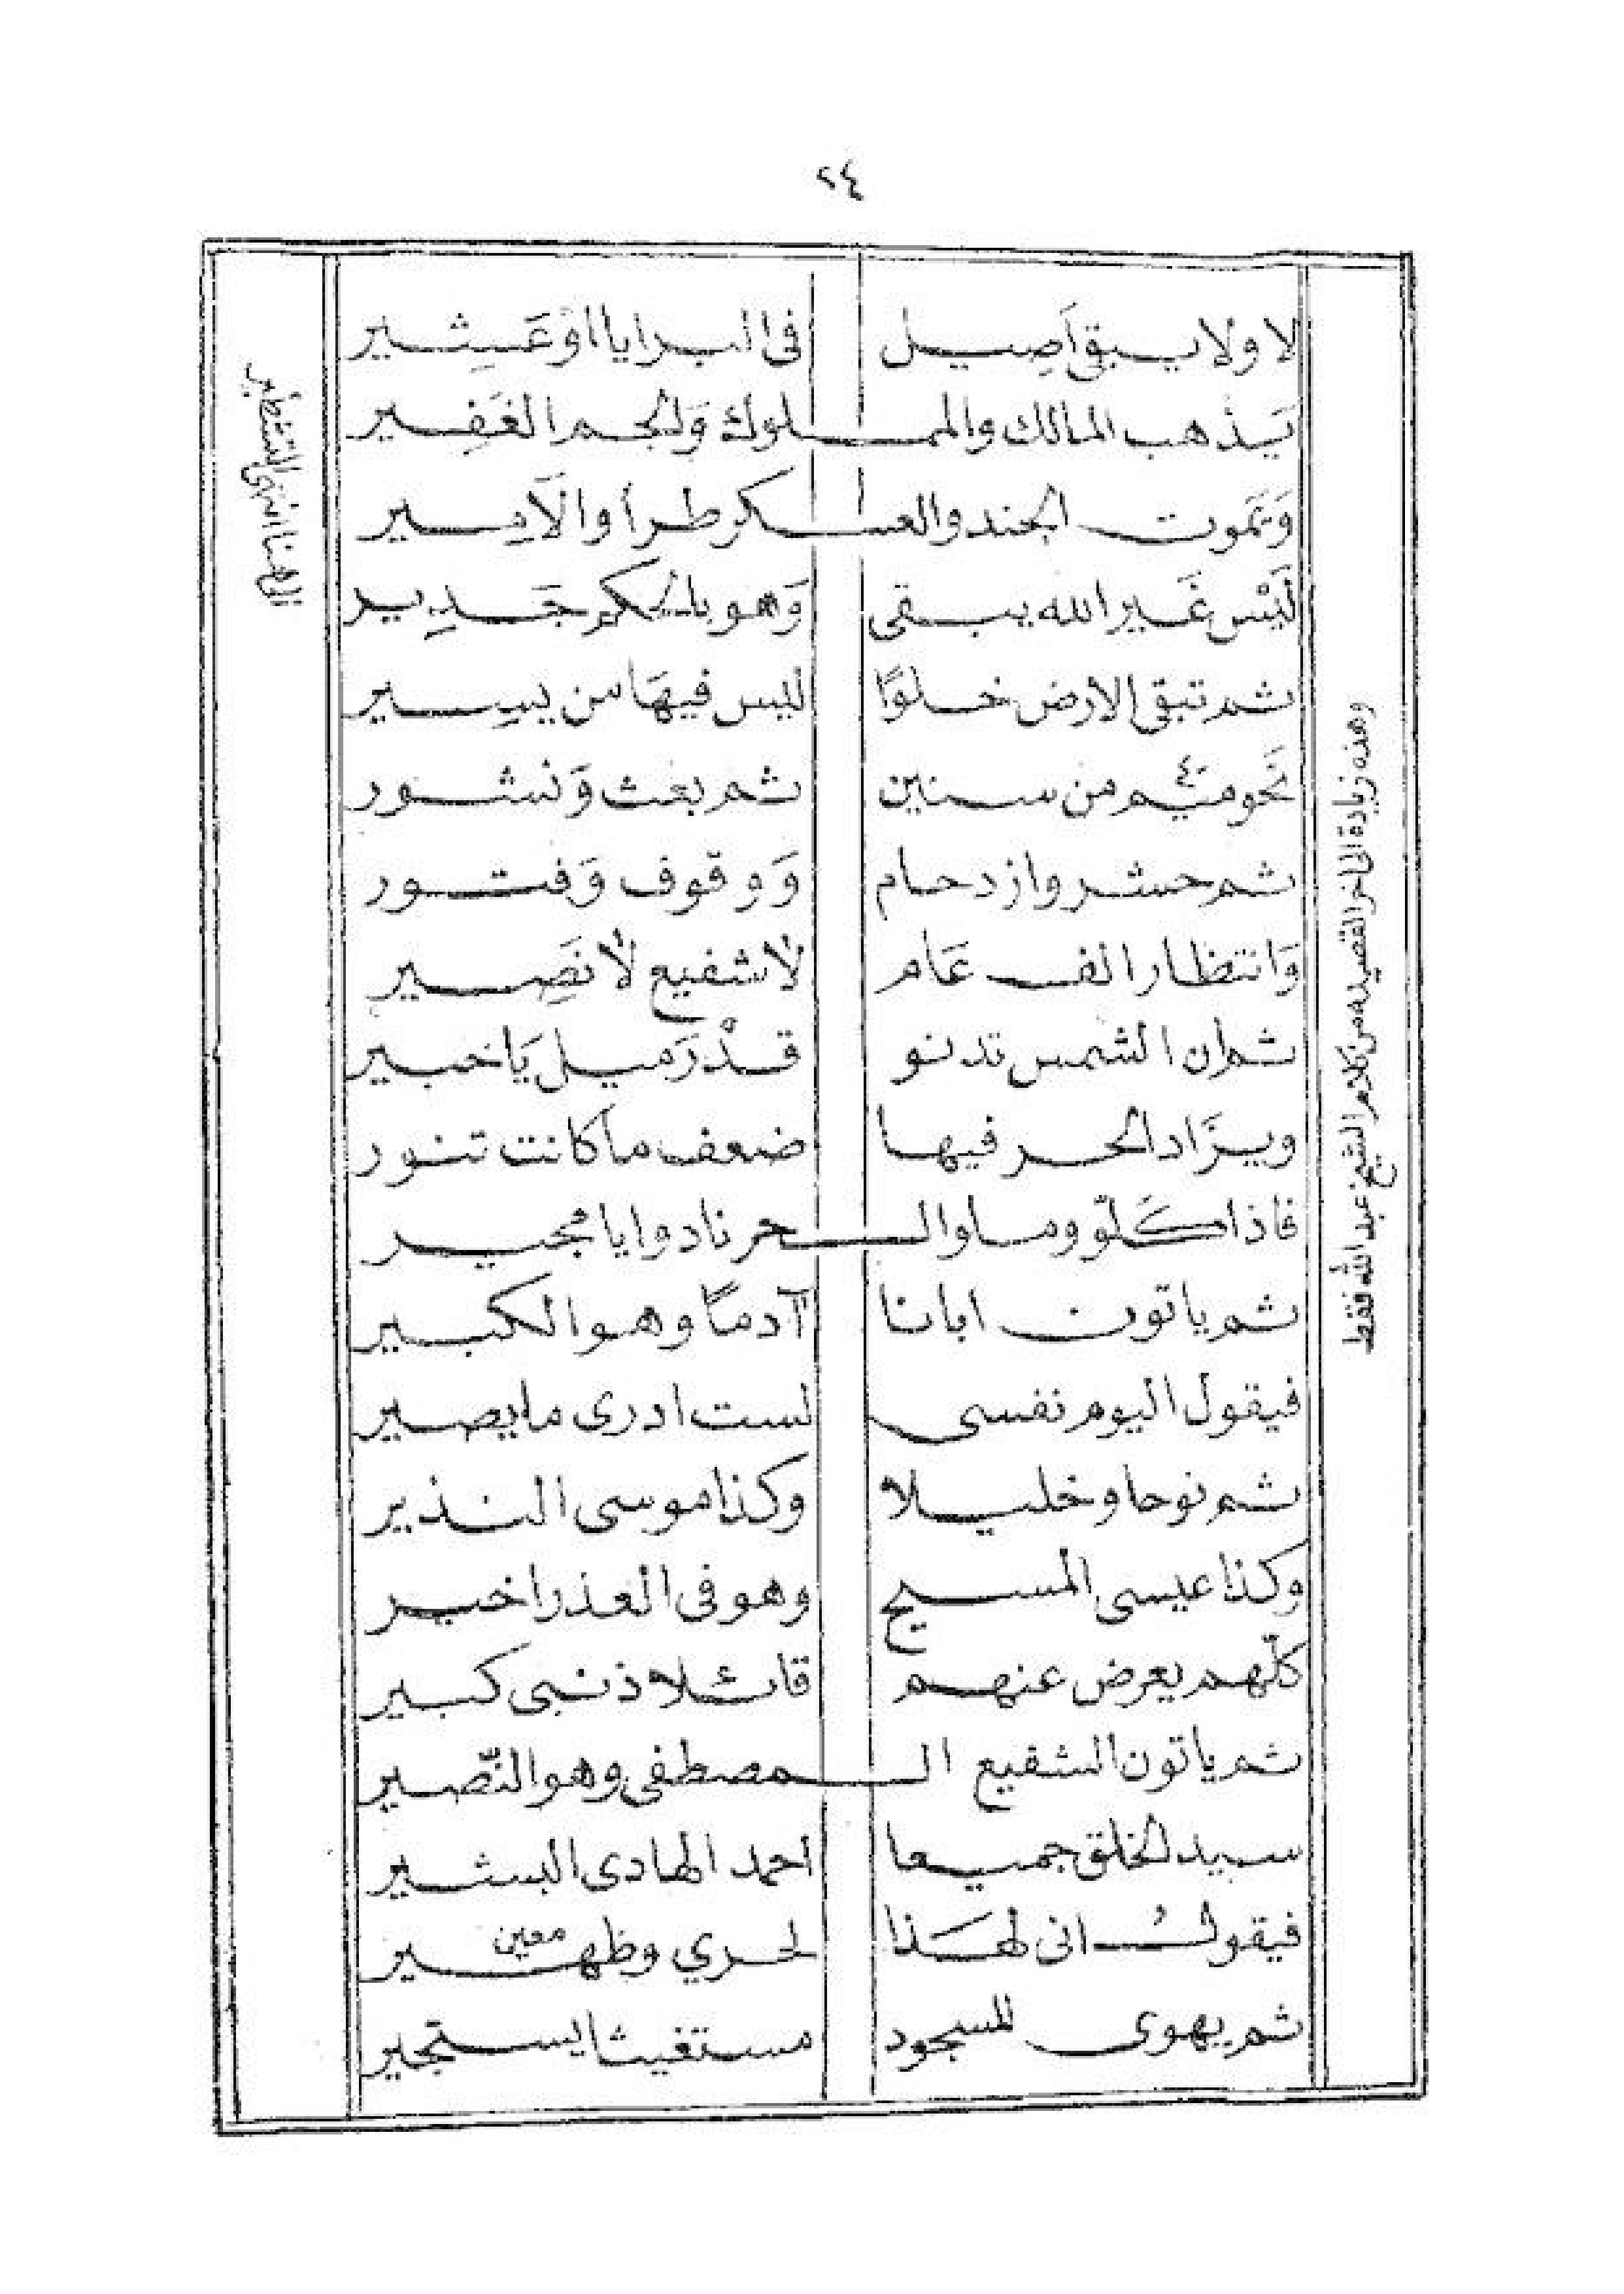 ٢٤
لا ولا يبقى أَصِيل في البرايا اوْ عَشِير
يَذهب المالك والممـلوك وَالجم الغَفِير
وَتموت الجند والعسـكر طرا والاَمِير
لَيْس غَير الله يبقى وَهو بالحكم جَدِير
ثم تبقى الارض خلوًا ليس فيهَا من يسِير
نَحو من سنين ثم بعث وَنشور
ثم حشر وازدحام وَوقوف وَفتور
وَانتظار الف عَام لا شفيع لا نَصِير
ثم ان الشمس تدنو قدْرَ ميل يَا خبير
ويزَاد الحر فيها ضعف ما كانت تنور
فاذا كَلّو وملوا الـحر نادوا يا مجير
ثم ياتون ابانا آدمًا وهو الكبير
فيقول اليوم نفسى لست ادرى ما يصير
ثم نوحا وخليلا وكذا موسى النذير
وكذا عيسى المسيح وهو فى العذراخير
كلّهم يعرض عنهم قائلا ذنبى كبير
ثم ياتون الشفيع الـمصطفى وهو النّصير
سيد الخلق جميعا احمد الهادى البشير
فيقولُ انى لهَذا لحري وظهير
معين
ثم يهوى للسجود مستغيثا يستجير
وهذه زيادة الى اخر القصيده من كلام الشيخ عبد الله فقط